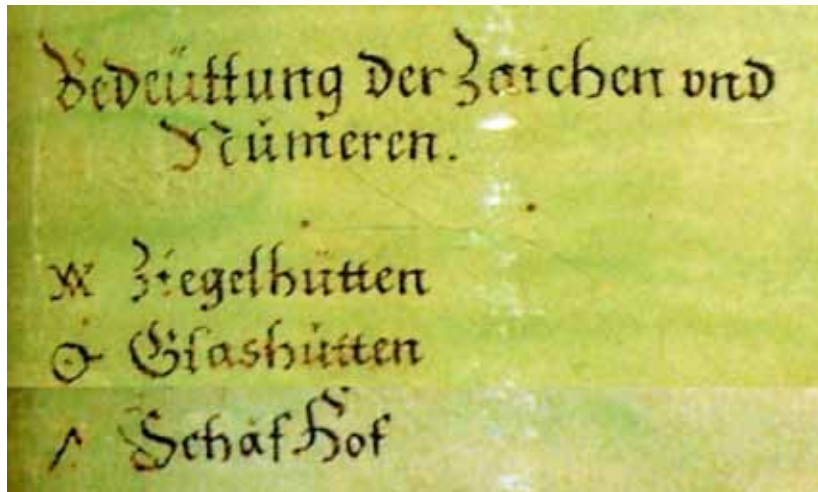 Bedeüttung der Zaichen vnd
Nùmeren.
Ziegelhütten
Glashütten
Schaf Hof